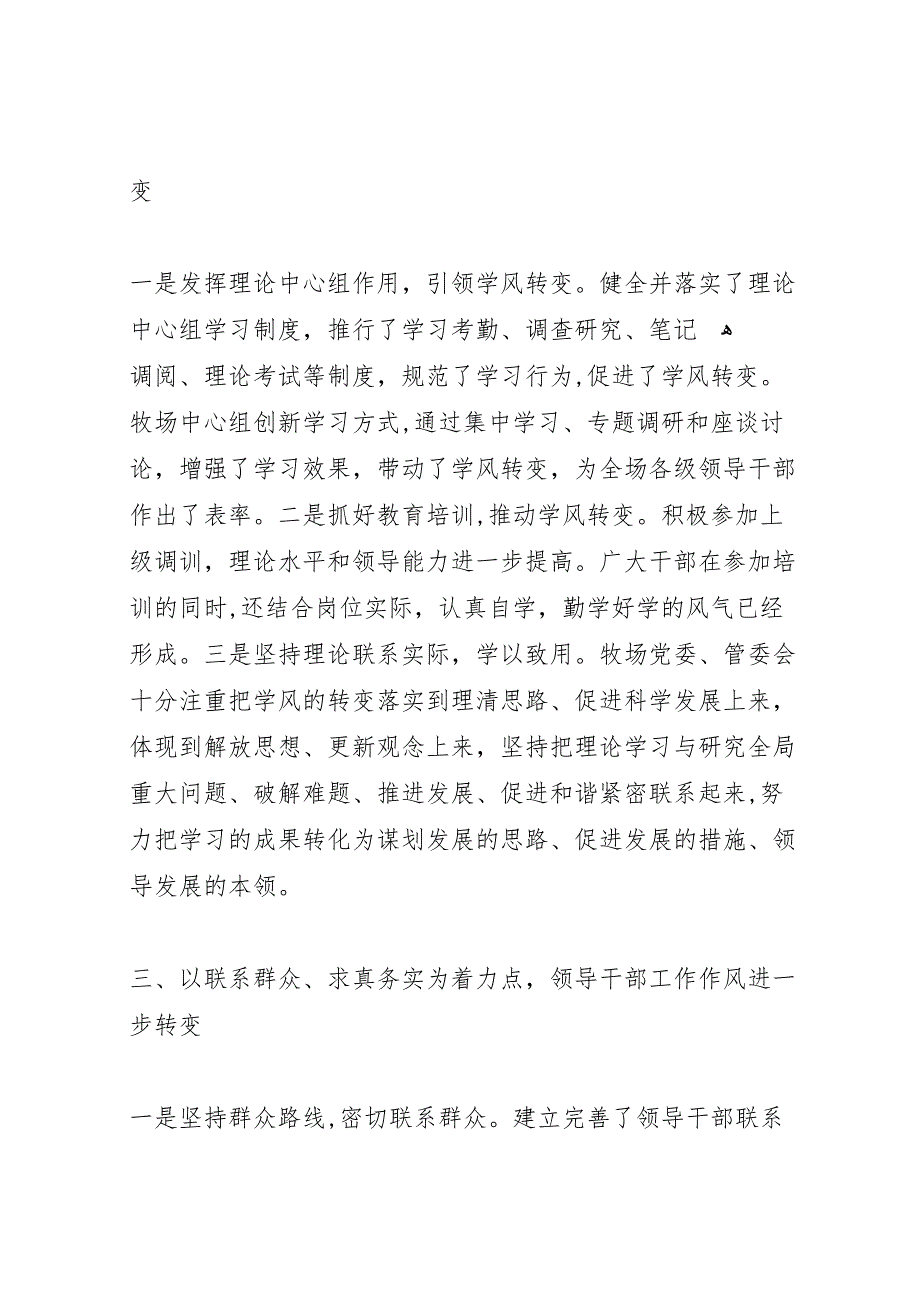 变
一是发挥理论中心组作用，引领学风转变。健全并落实了理论
中心组学习制度，推行了学习考勤、调查研究、笔记 ﻫ
调阅、理论考试等制度，规范了学习行为,促进了学风转变。
牧场中心组创新学习方式,通过集中学习、专题调研和座谈讨
论，增强了学习效果，带动了学风转变，为全场各级领导干部
作出了表率。二是抓好教育培训,推动学风转变。积极参加上
级调训，理论水平和领导能力进一步提高。广大干部在参加培
训的同时,还结合岗位实际，认真自学，勤学好学的风气已经
形成。三是坚持理论联系实际，学以致用。牧场党委、管委会
十分注重把学风的转变落实到理清思路、促进科学发展上来，
体现到解放思想、更新观念上来，坚持把理论学习与研究全局
重大问题、破解难题、推进发展、促进和谐紧密联系起来,努
力把学习的成果转化为谋划发展的思路、促进发展的措施、领
导发展的本领。
三、以联系群众、求真务实为着力点，领导干部工作作风进一
步转变
一是坚持群众路线,密切联系群众。建立完善了领导干部联系